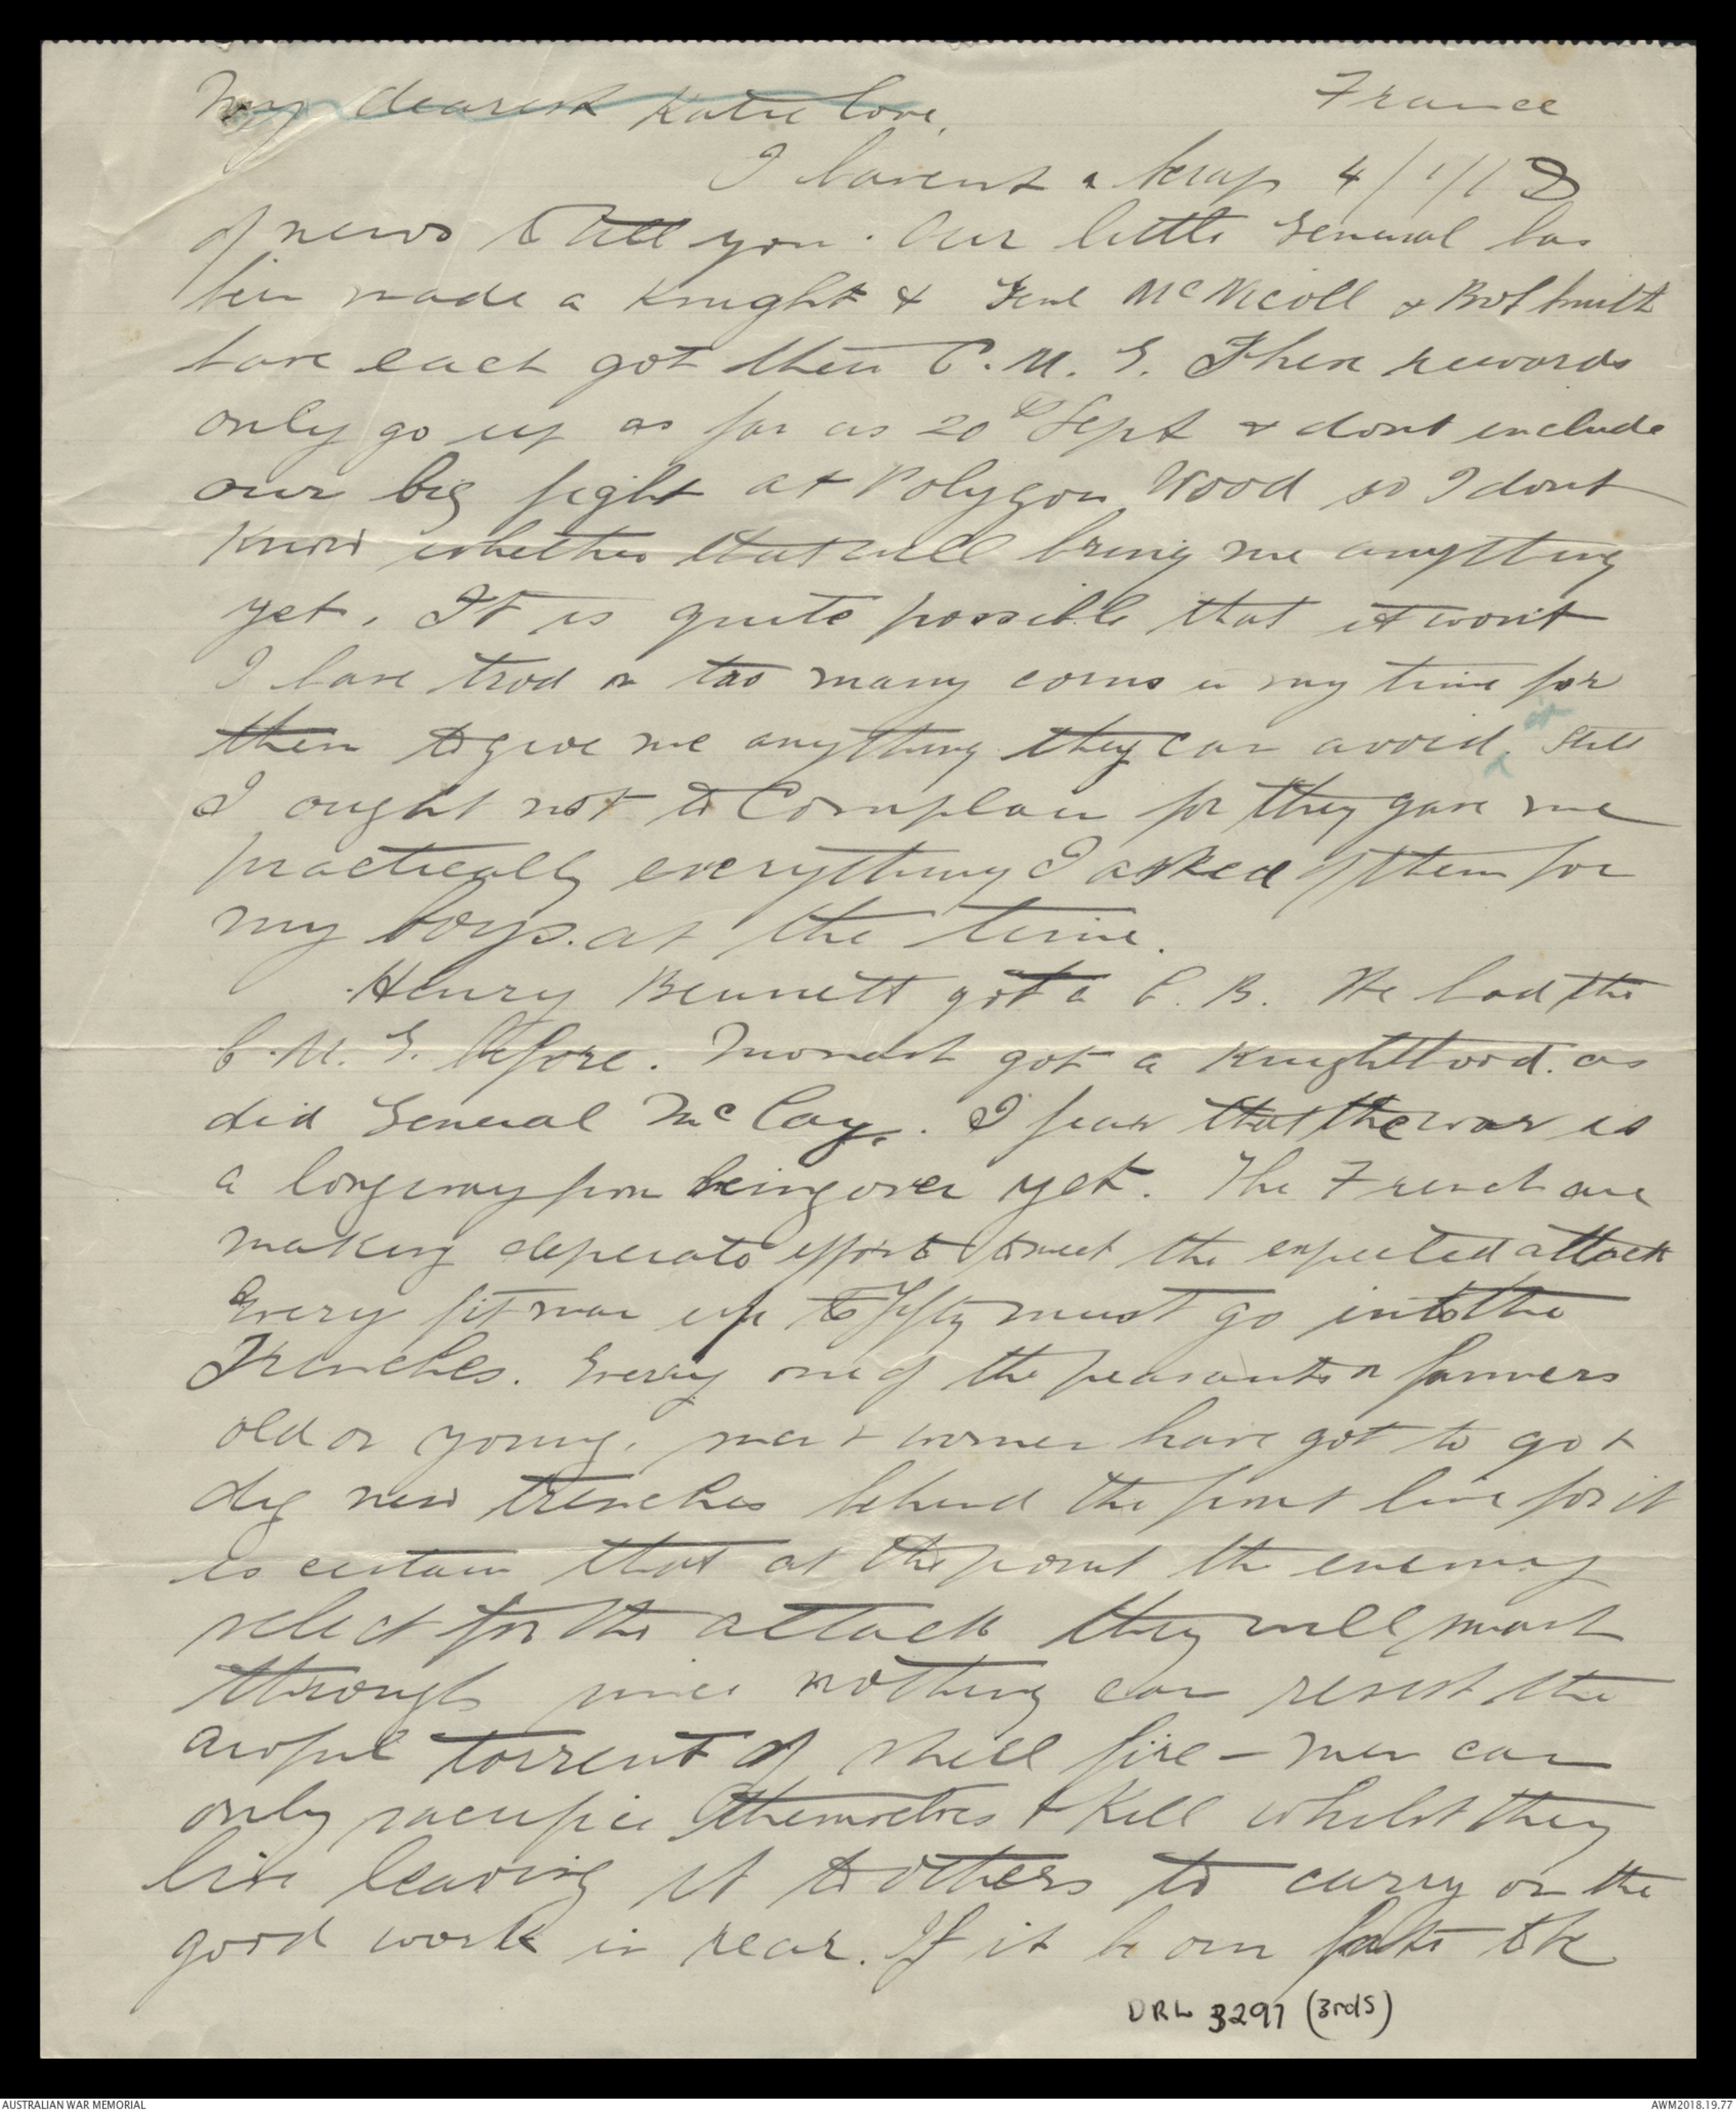 My dearest Katie love,
France
I havent a scrap 4/1/18
of news to tell you. Our little General has
been made a Knight & Genl McNicoll & Bob Smith
have each got their C.M.G. These rewards
only go up as far as 20th Sept & dont include
our big fight at Polygon Wood so I dont
know whether that will bring me anything
yet. It is quite possible that it won't
I have trod on too many corns in my time for
them to give me anything they can avoid. Still
I ought not to complain for they gave me
practically everything I asked of them for
my boys at the time.
Henry Bennett got a C.B. He had the
C.M.G. before. Monash got a Knighthood as
did General McCay. I fear that the war is
a long way from being over yet. The French are
making desperate efforts to meet the expected attack
Every fit man up to fifty must go into the
Trenches. Every one of the peasants or farmers
old or young, men & women have got to go &
dig new trenches behind the front line for it
is certain that at the point the enemy
select for the attack they will smash
through since nothing can resist the
awful torrent of shell fire - men can
only sacrifice themselves & kill whilst they
live leaving it to others to carry on the
good work in rear. If it be our fate to be
DRL 3297 (3rdS)
AUSTRALIAN WAR MEMORIAL
AWM2018.19.77